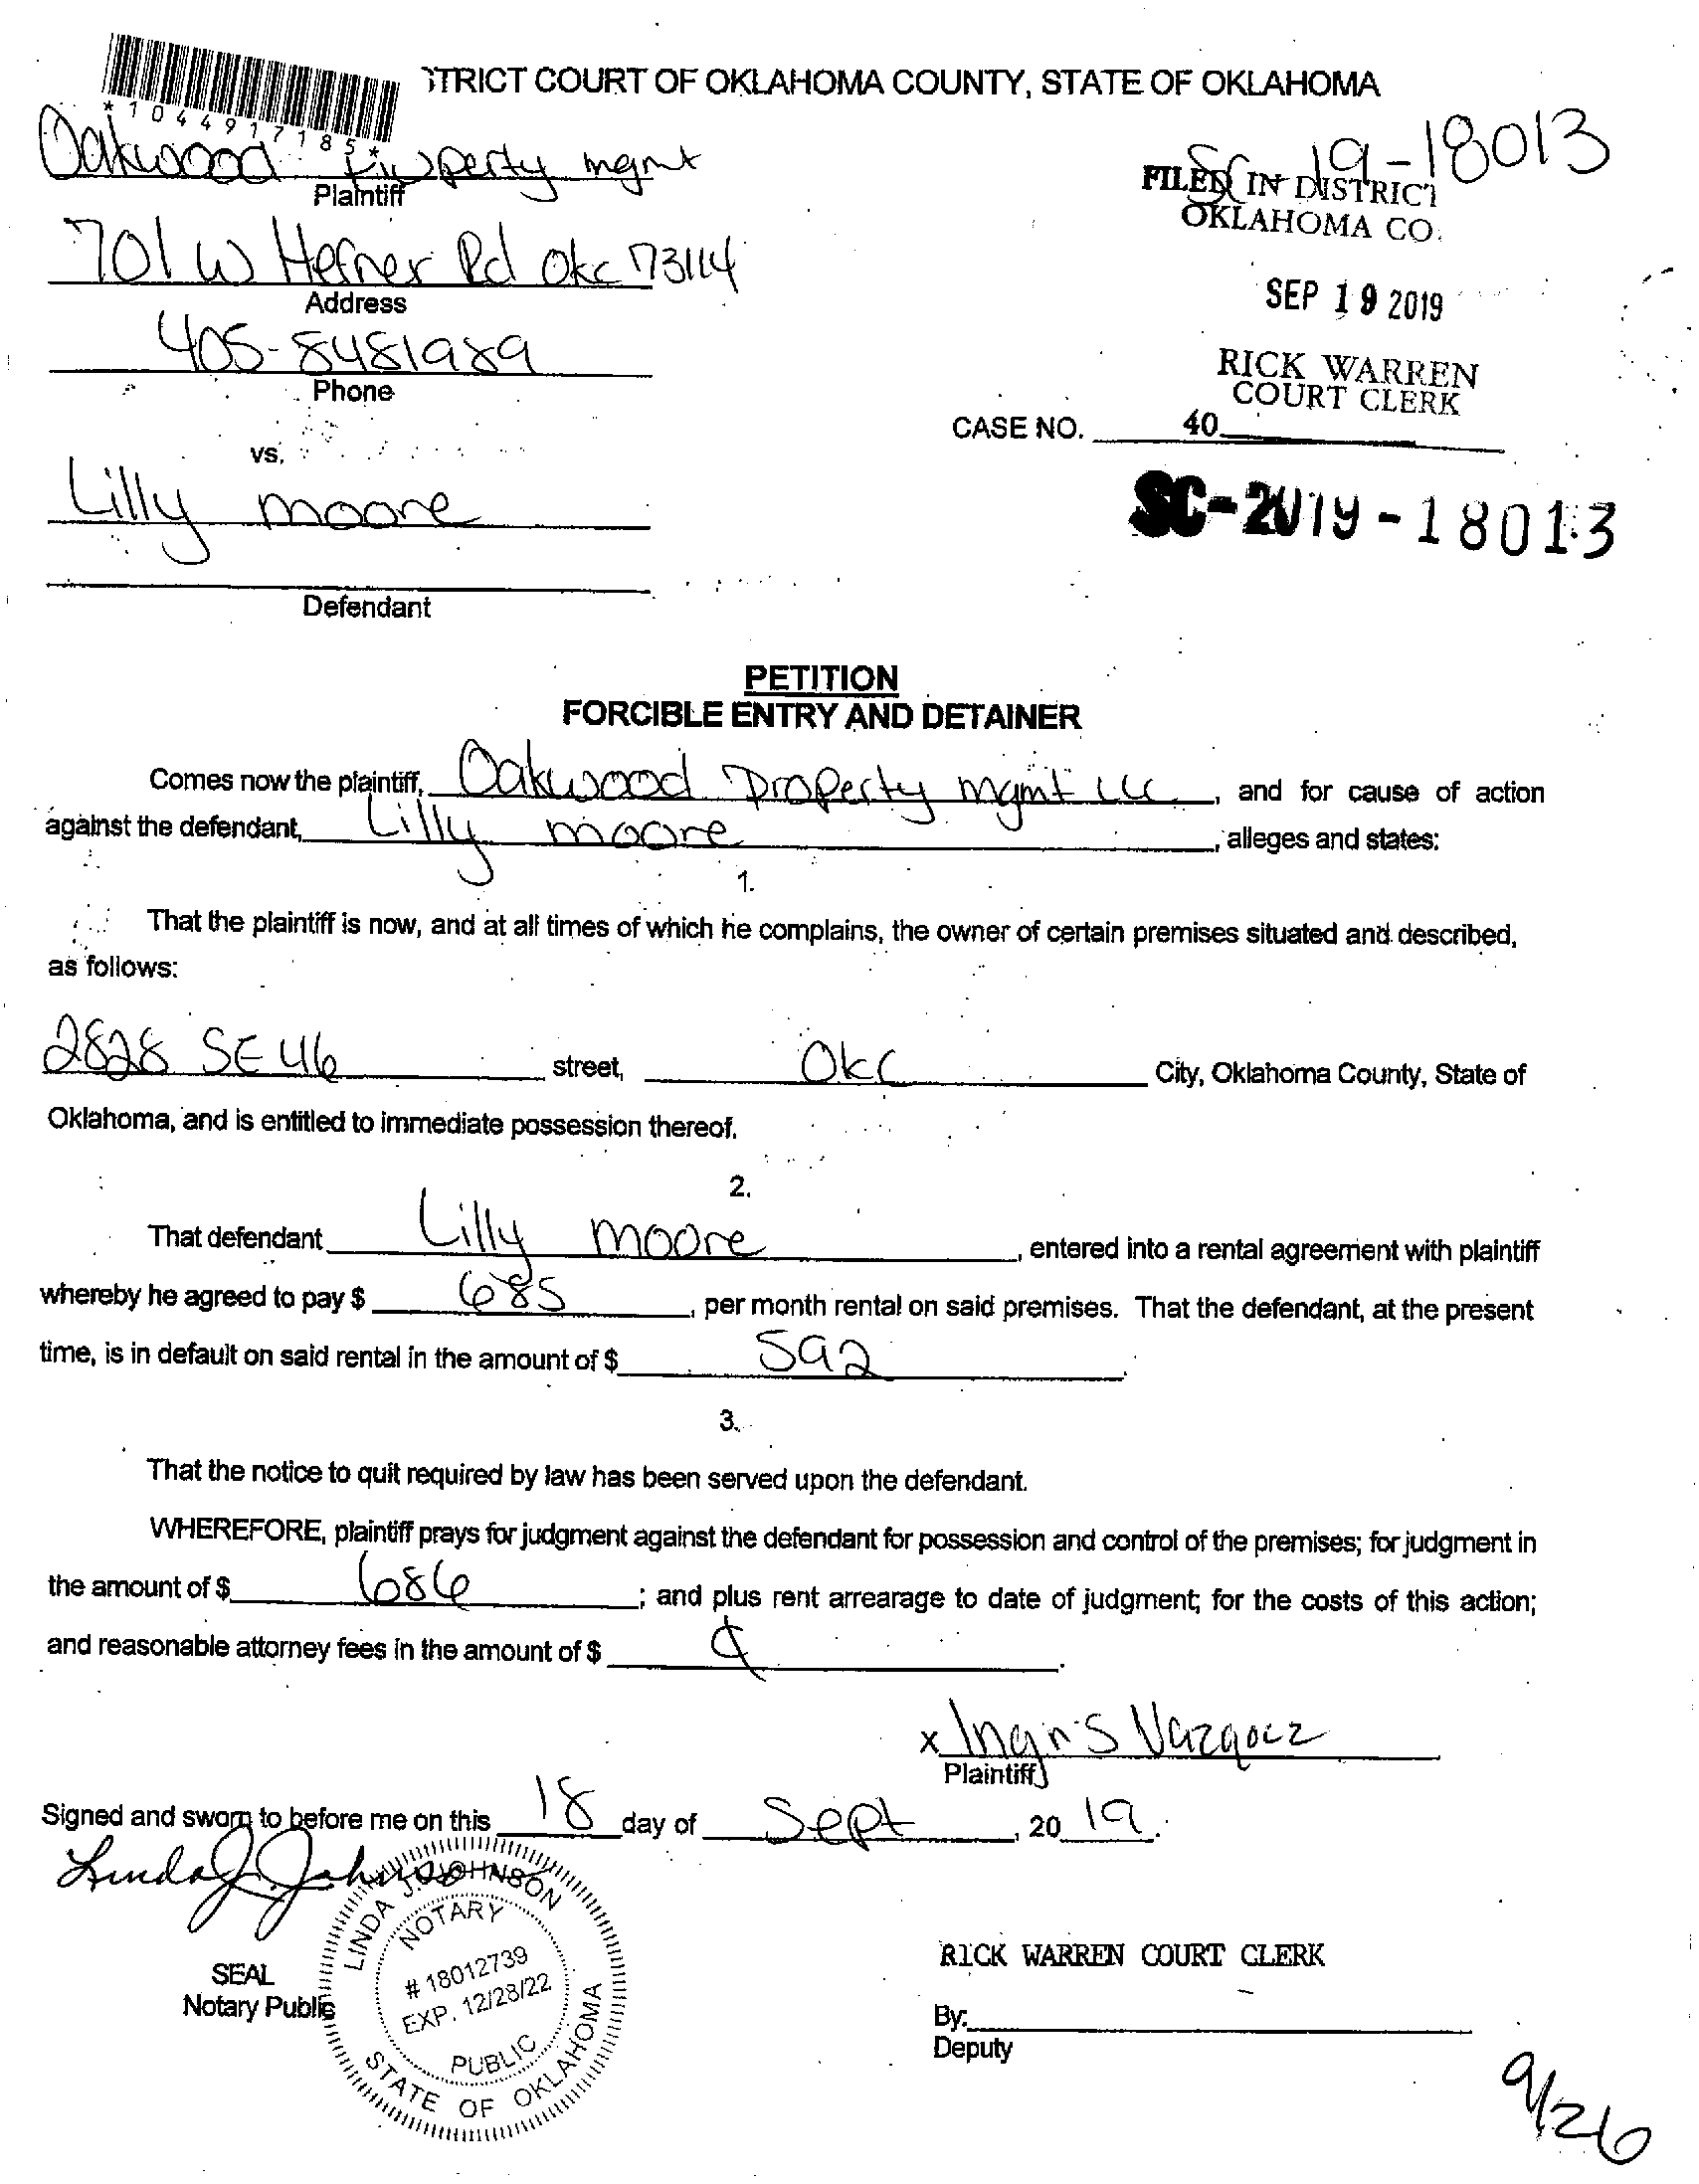 iTRICT COURT OF OKLAHOMA COUNTY, STATE OF OKLAHOMA
*1044917185*
Oakwood Property mgmt
Plaintiff
SC-19-18013
FILED IN DISTRICT
OKLAHOMA CO.
701 W Hefner Rd Okc 73114
Address
SEP 19 2019
405-8481989
Phone
RICK WARREN
COURT CLERK
CASE NO. 40
vs.
Lilly moore
SC-2019-18013
Defendant
PETITION
FORCIBLE ENTRY AND DETAINER
Comes now the plaintiff, Oakwood Property mgmt LLC, and for cause of action
against the defendant, Lilly moore, alleges and states:
1.
That the plaintiff is now, and at all times of which he complains, the owner of certain premises situated and described,
as follows:
2828 SE 46 street, OkC City, Oklahoma County, State of
Oklahoma, and is entitled to immediate possession thereof.
2.
That defendant Lilly moore, entered into a rental agreement with plaintiff
whereby he agreed to pay $ 685, per month rental on said premises. That the defendant, at the present
time, is in default on said rental in the amount of $ 592.
3.
That the notice to quit required by law has been served upon the defendant.
WHEREFORE, plaintiff prays for judgment against the defendant for possession and control of the premises; for judgment in
the amount of $ 686; and plus rent arrearage to date of judgment; for the costs of this action;
and reasonable attorney fees in the amount of $
x Vazquez
Plaintiff
Signed and sworn to before me on this 18 day of Sept, 20 19.
Linda J. Johnson
LINDA J. JOHNSON
NOTARY
# 18012739
EXP. 12/28/22
PUBLIC
STATE OF OKLAHOMA
SEAL
Notary Public
RICK WARREN COURT CLERK
By:
Deputy
9/26